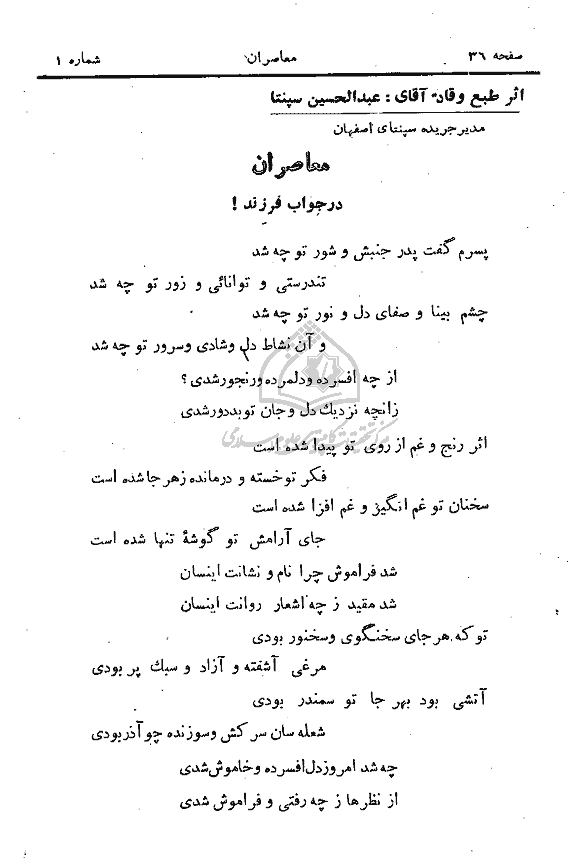 صفحه ۳۶ معاصران شماره ۱
اثر طبع وقاد آقای : عبدالحسین سپنتا
مدیر جریده سپنتای اصفهان
معاصران
در جواب فرزند !
پسرم گفت پدر جنبش و شور تو چه شد
تندرستی و توانائی و زور تو چه شد
چشم بینا و صفای دل و نور تو چه شد
و آن نشاط دل وشادی وسرور تو چه شد
از چه افسرده ودلمرده ورنجور شدی ؟
زانچه نزدیك دل وجان تو بد دور شدی
اثر رنج و غم از روی تو پیدا شده است
فکر تو خسته و درمانده زهر جا شده است
سخنان تو غم انگیز و غم افزا شده است
جای آرامش تو گوشهٔ تنها شده است
شد فراموش چرا نام و نشانت اینسان
شد مقید ز چه اشعار روانت اینسان
تو که هر جای سخنگوی وسخنور بودی
مرغی آشفته و آزاد و سبك پر بودی
آتشی بود بهر جا تو سمندر بودی
شعله سان سرکش وسوزنده چو آذر بودی
چه شد امروز دل افسرده و خاموش شدی
از نظرها ز چه رفتی و فراموش شدی
مرکز تحقیقات کامپیوتری علوم اسلامی